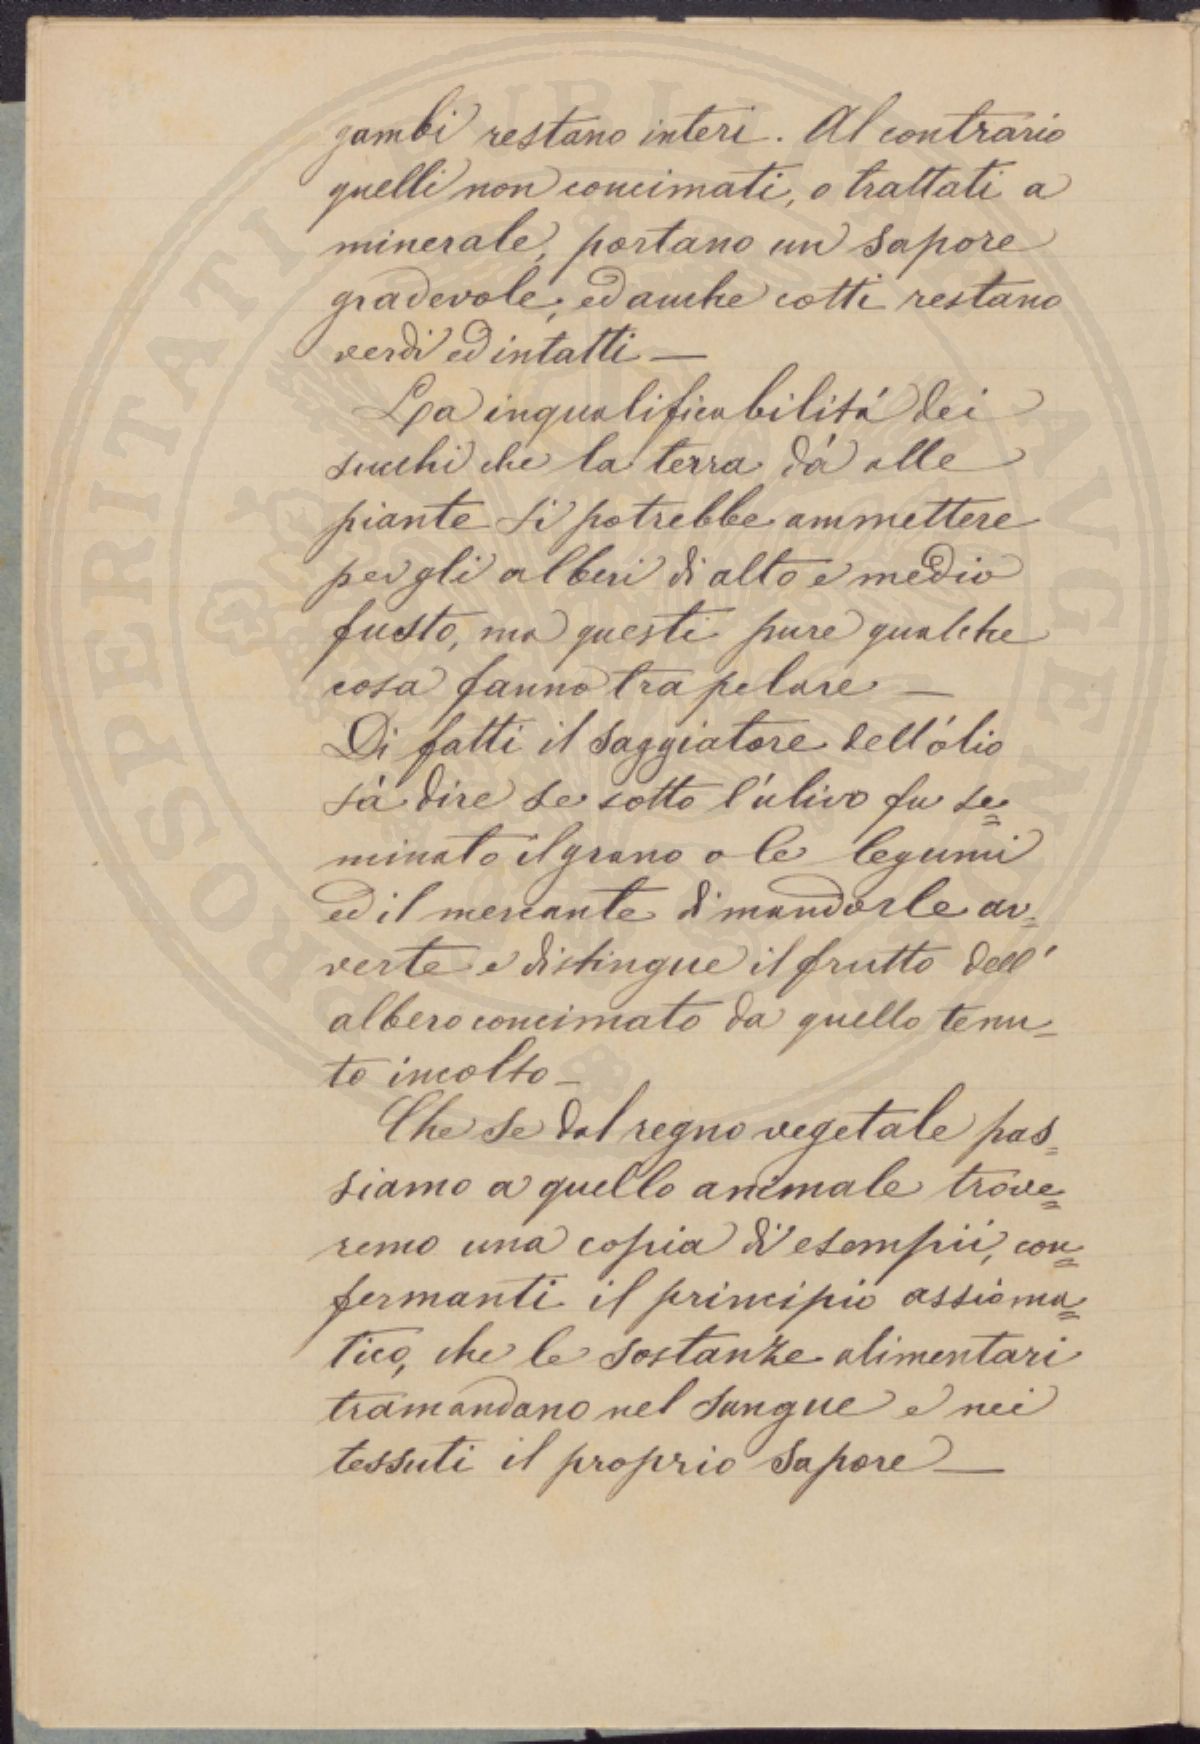 gambi restano interi. Al contrario
quelli non concimati, o trattati a
minerale, portano un sapore
gradevole, ed anche cotti restano
verdi ed intatti —
La inqualificabilitá dei
succhi che la terra dá alle
piante si potrebbe ammettere
per gli alberi di alto e medio
fusto, ma questi pure qualche
cosa fanno trapelare —
Di fatti il saggiatore dell'olio
sá dire se sotto l'ulivo fu se=
minato il grano o le legumi
ed il mercante di mandorle av=
verte e distingue il frutto dell'
albero concimato da quello tenu=
to incolto —
Che se dal regno vegetale pas=
siamo a quello animale trove=
remo una copia di esempii, con=
fermanti il principio assioma=
tico, che le sostanze alimentari
tramandano nel sangue e nei
tessuti il proprio sapore —
PROSPERITATI PUBLICAE AVGENDAE